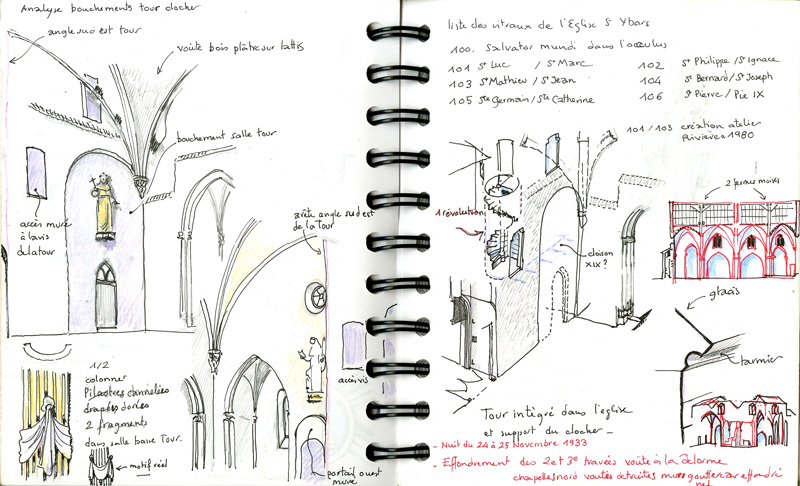 Analyse bouchements tour clocher
angle sud est tour
voûte bois plâtre sur lattis
bouchement salle tour
accès muré
à la vis
de la tour
arête angle sud est
de la Tour
accès vis
1/2
colonnes
Pilastres cannelées
drapées dorées
2 fragments
dans salle basse Tour.
motif réel
portail ouest
muré
liste des vitraux de l'Eglise St Ybars
100. Salvator mundi dans l'occulus
101 St Luc / St Marc
102 St Philippe / St Ignace
103 St Mathieu / St Jean
104 St Bernard / St Joseph
105 Ste Germain / Ste Catherine
106 St Pierre / Pie IX
101 / 103 création atelier
Rivières 1980
1 révolution
cloison
XIX ?
2 fermes moises
glacis
larmier
Tour intégré dans l'eglise
et support du clocher _
- Nuit du 24 à 25 Novembre 1933
- Effondrement des 2 et 3e travées voute à la
chapelles nord voutés détruites murs gouttereau effondré